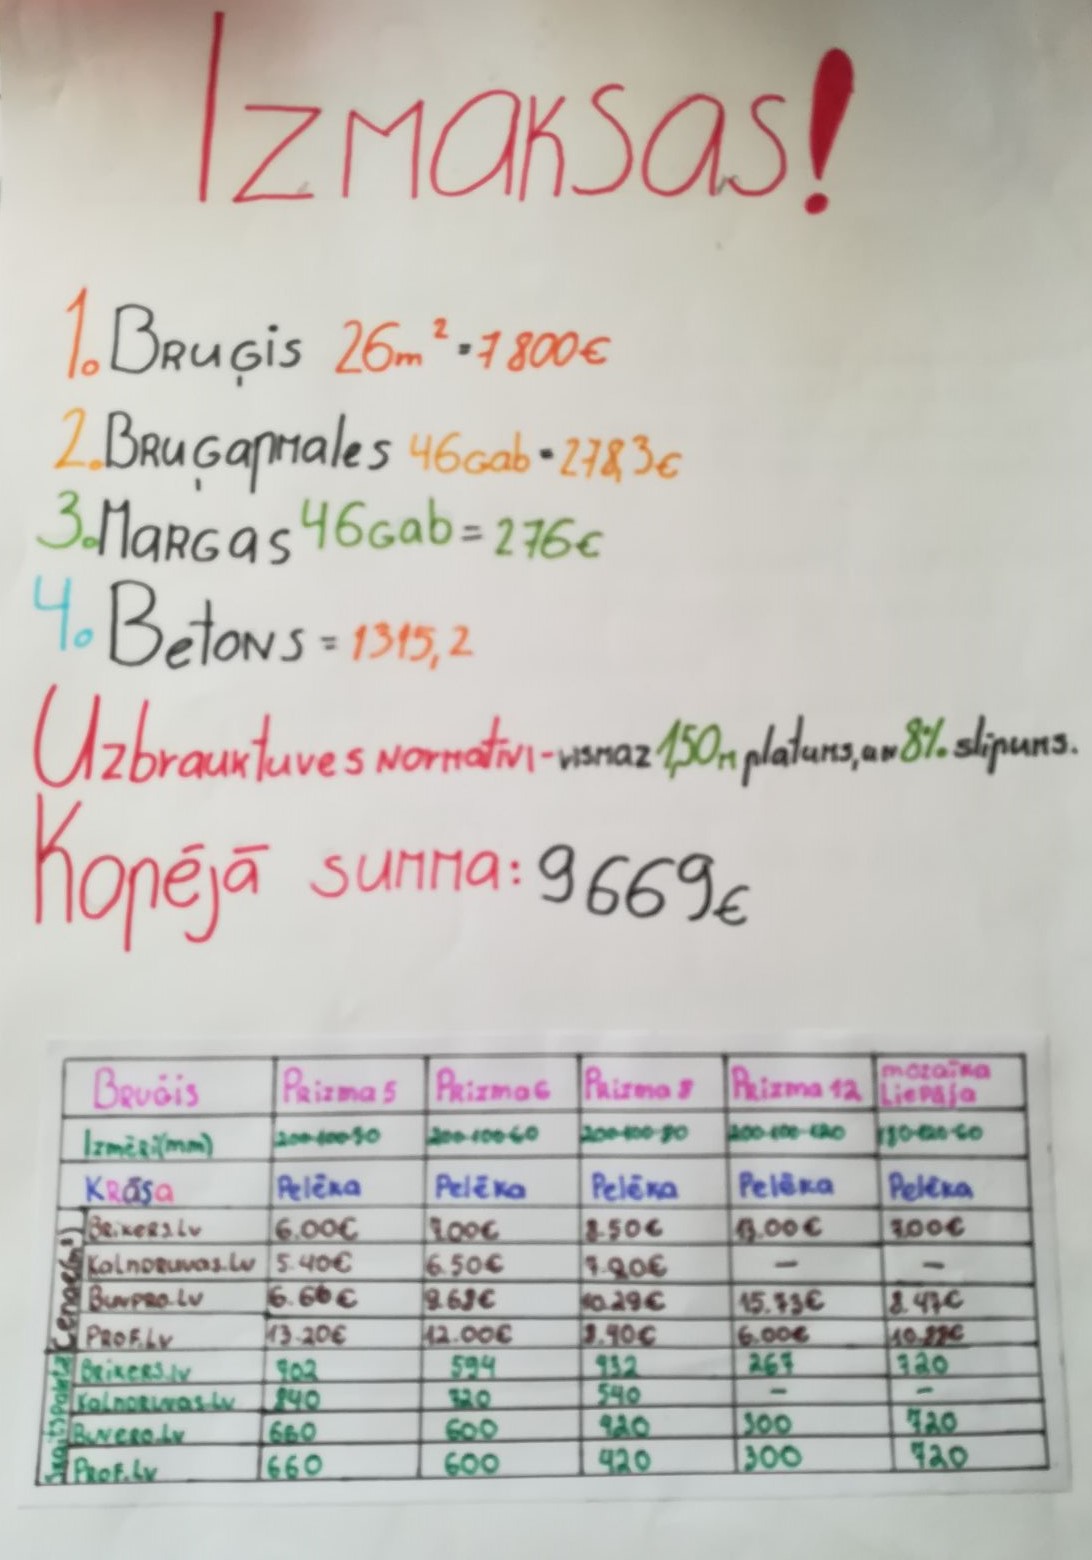 Izmaksas!
1. Bruģis 26m² = 7800€
2. Bruģapmales 46gab = 278,3€
3. Margas 46gab = 276€
4. Betons = 1315,2
Uzbrauktuves normatīvi - vismaz 1,50m platums, un 8% slīpums.
Kopējā summa: 9669€
Bruģis Prizma 5 Prizma 6 Prizma 8 Prizma 12 mozaīka Liepāja
Izmēri(mm) 200·100·50 200·100·60 200·100·80 200·100·120 180·120·60
Krāsa Pelēka Pelēka Pelēka Pelēka Pelēka
Cena€(m²)
Brikers.lv 6.00€ 7.00€ 8.50€ 13.00€ 7.00€
Kalnoruvas.lv 5.40€ 6.50€ 7.90€ - -
Buvpro.lv 6.66€ 9.68€ 10.29€ 15.73€ 8.47€
Prof.lv 13.20€ 12.00€ 8.40€ 6.00€
Brikers.lv 702 594 432 267 720
Kalnoruvas.lv 840 720 540 - -
660 600 420 300 720
Prof.lv 660 600 420 300 720